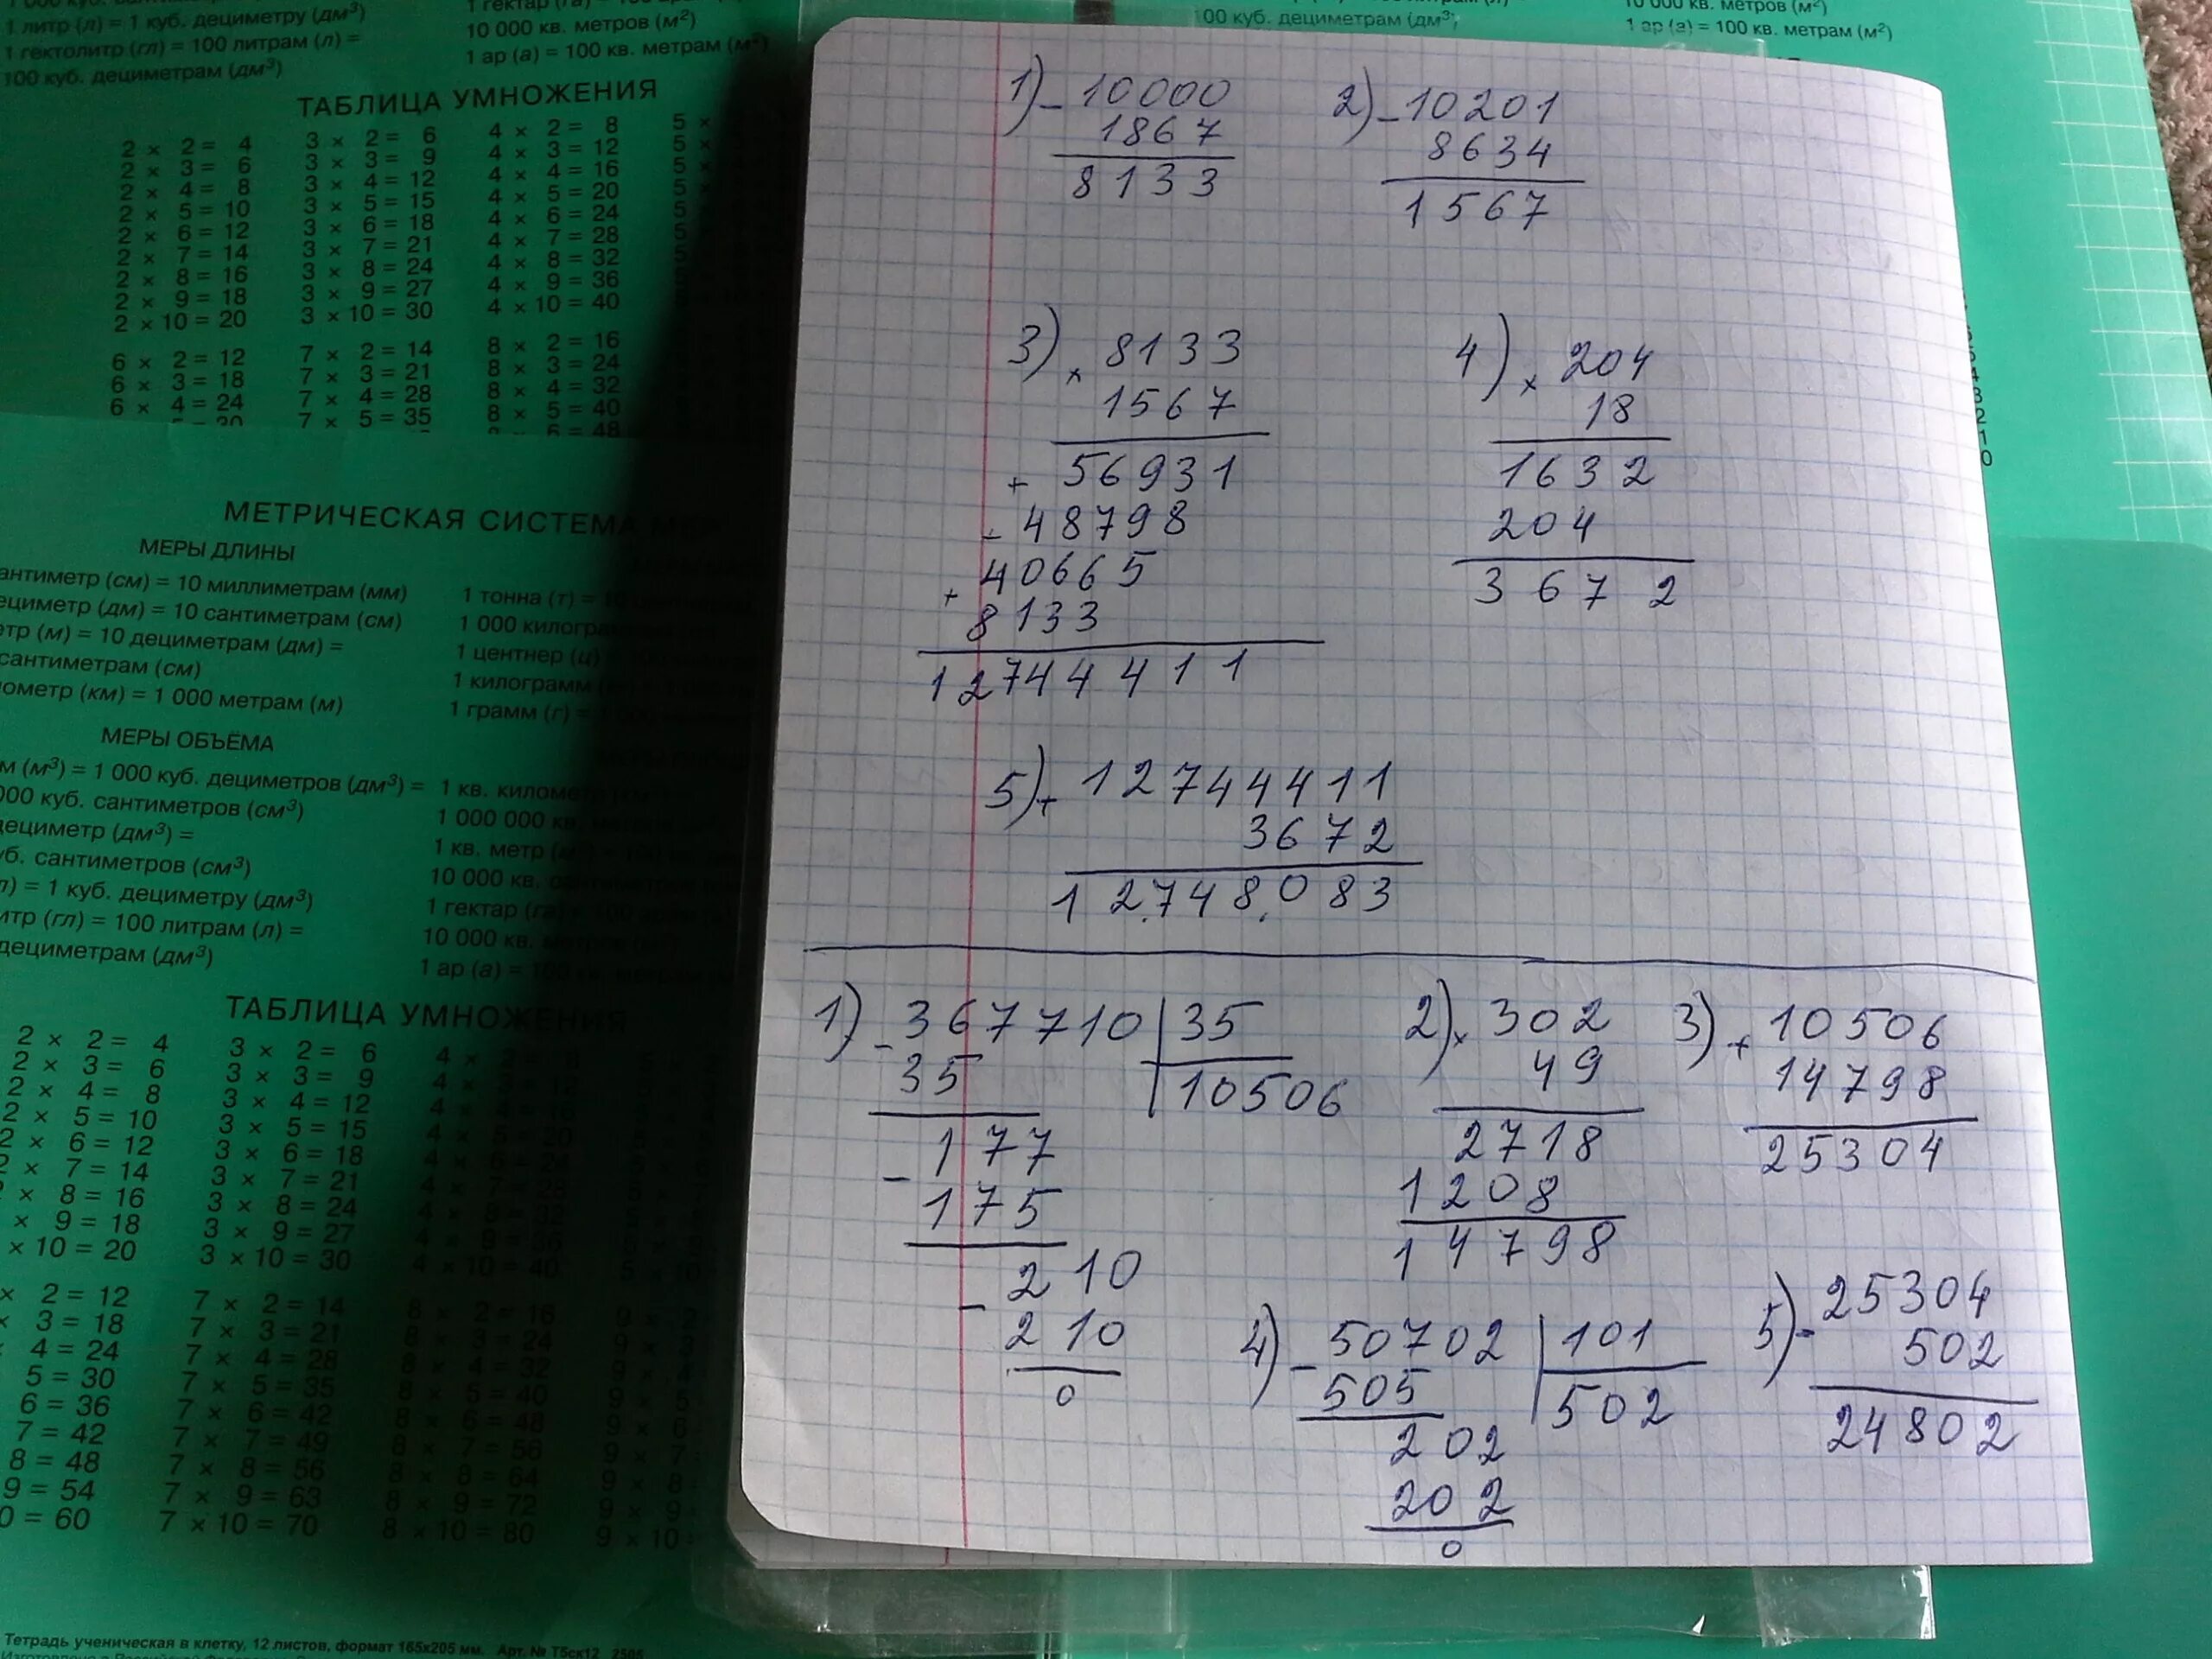 1 литр (л) = 1 куб. дециметру (дм³)
1 гектолитр (гл) = 100 литрам (л) =
100 куб. дециметрам (дм³)
10 000 кв. метров (м²)
1 ар (а) = 100 кв. метрам (м²)
00 куб. дециметрам (дм³)
10 000 кв. метров (м²)
1 ар (а) = 100 кв. метрам (м²)
ТАБЛИЦА УМНОЖЕНИЯ
2 × 2 = 4
2 × 3 = 6
2 × 4 = 8
2 × 5 = 10
2 × 6 = 12
2 × 7 = 14
2 × 8 = 16
2 × 9 = 18
2 × 10 = 20
3 × 2 = 6
3 × 3 = 9
3 × 4 = 12
3 × 5 = 15
3 × 6 = 18
3 × 7 = 21
3 × 8 = 24
3 × 9 = 27
3 × 10 = 30
4 × 2 = 8
4 × 3 = 12
4 × 4 = 16
4 × 5 = 20
4 × 6 = 24
4 × 7 = 28
4 × 8 = 32
4 × 9 = 36
4 × 10 = 40
6 × 2 = 12
6 × 3 = 18
6 × 4 = 24
7 × 2 = 14
7 × 3 = 21
7 × 4 = 28
7 × 5 = 35
8 × 2 = 16
8 × 3 = 24
8 × 4 = 32
8 × 5 = 40
8 × 6 = 48
МЕТРИЧЕСКАЯ СИСТЕМА
МЕРЫ ДЛИНЫ
антиметр (см) = 10 миллиметрам (мм)
ециметр (дм) = 10 сантиметрам (см)
етр (м) = 10 дециметрам (дм) =
сантиметрам (см)
ометр (км) = 1 000 метрам (м)
1 тонна (т) =
1 000 килогра
1 центнер (ц)
1 килограмм
1 грамм (г) =
МЕРЫ ОБЪЁМА
м (м³) = 1 000 куб. дециметров (дм³) =
000 куб. сантиметров (см³)
дециметр (дм³) =
уб. сантиметров (см³)
л) = 1 куб. дециметру (дм³)
итр (гл) = 100 литрам (л) =
дециметрам (дм³)
1 кв. километ
1 000 000 кв.
1 кв. метр
10 000 кв.
1 гектар
10 000 кв.
1 ар (а) =
ТАБЛИЦА УМНОЖЕНИЯ
2 × 2 = 4
2 × 3 = 6
2 × 4 = 8
2 × 5 = 10
2 × 6 = 12
2 × 7 = 14
× 8 = 16
× 9 = 18
× 10 = 20
3 × 2 = 6
3 × 3 = 9
3 × 4 = 12
3 × 5 = 15
3 × 6 = 18
3 × 7 = 21
3 × 8 = 24
3 × 9 = 27
3 × 10 = 30
× 2 = 12
× 3 = 18
4 = 24
5 = 30
6 = 36
7 = 42
8 = 48
9 = 54
0 = 60
7 × 2 = 14
7 × 3 = 21
7 × 4 = 28
7 × 5 = 35
7 × 6 = 42
7 × 7 = 49
7 × 8 = 56
7 × 9 = 63
7 × 10 = 70
8 × 2 = 16
8 × 3 = 24
8 × 4 = 32
8 × 5 = 40
8 × 6 = 48
8 × 7 = 56
8 × 8 = 64
8 × 9 = 72
8 × 10 = 80
Тетрадь ученическая в клетку, 12 листов, формат 165х205 мм. Арт. № Т5ск12
1) - 10000
1867
8133
2) - 10201
8634
1567
3) × 8133
1567
+ 56931
48798
+ 40665
8133
12744411
4) × 204
18
1632
204
3672
5) + 12744411
3672
12.748.083
1) - 367710 | 35
35 | 10506
177
- 175
210
- 210
0
2) × 302
49
2718
1208
14798
3) + 10506
14798
25304
4) - 50702 | 101
505 | 502
202
202
0
5) - 25304
502
24802